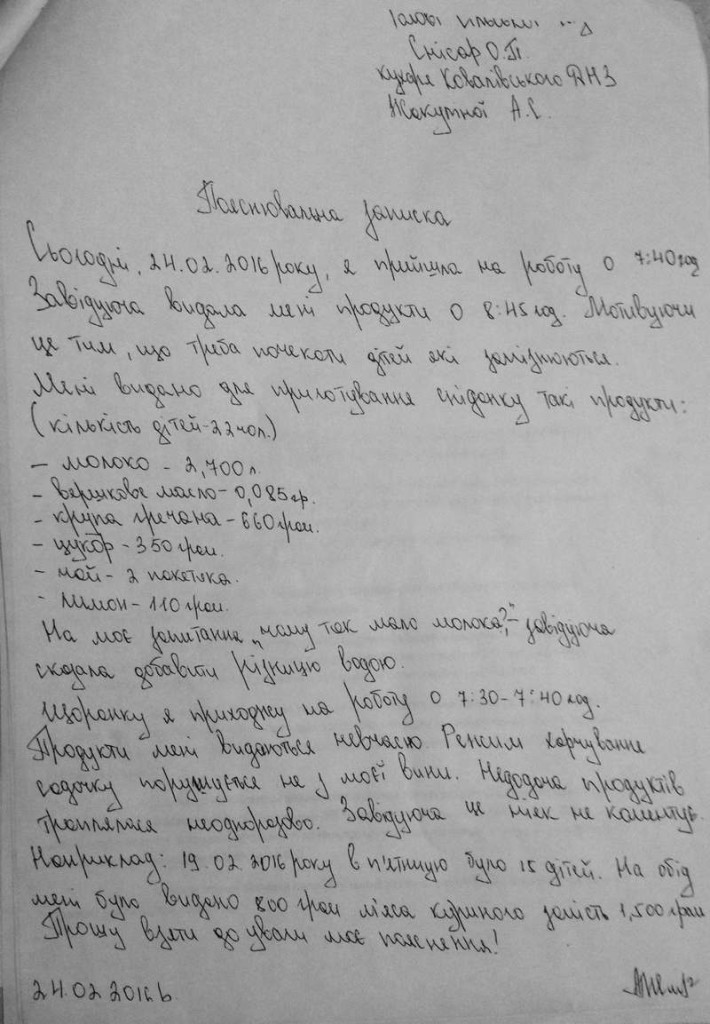 Снісар О.П.
кухаря Ковалівського ДНЗ
А.Є.
Пояснювальна записка
Сьогодні, 24.02.2016 року, я прийшла на роботу о 7:40 год
Завідуюча видала мені продукти о 8:45 год. Мотивуючи
це тим, що треба почекати дітей які запізнюються.
Мені видано для приготування сніданку такі продукти:
(кількість дітей-22 чол.)
– молоко - 2,700 л.
- вершкове масло-0,085 гр.
- крупа гречана-660 грам.
- цукор-350 грам.
- чай- 2 пакетика.
- лимон-110 грам.
На моє запитання „чому так мало молока?"- завідуюча
сказала добавити різницю водою.
Щоранку я приходжу на роботу о 7:30-7:40 год.
Продукти мені видаються невчасно. Режим харчування
садочку порушується не з моєї вини. Недодача продуктів
траплялася неодноразово. Завідуюча це ніяк не коментує.
Наприклад: 19.02.2016 року в п'ятницю було 15 дітей. На обід
мені було видано 800 грам м'яса куриного замість 1,500 грам
Прошу взяти до уваги моє пояснення!
24.02.2016 р.